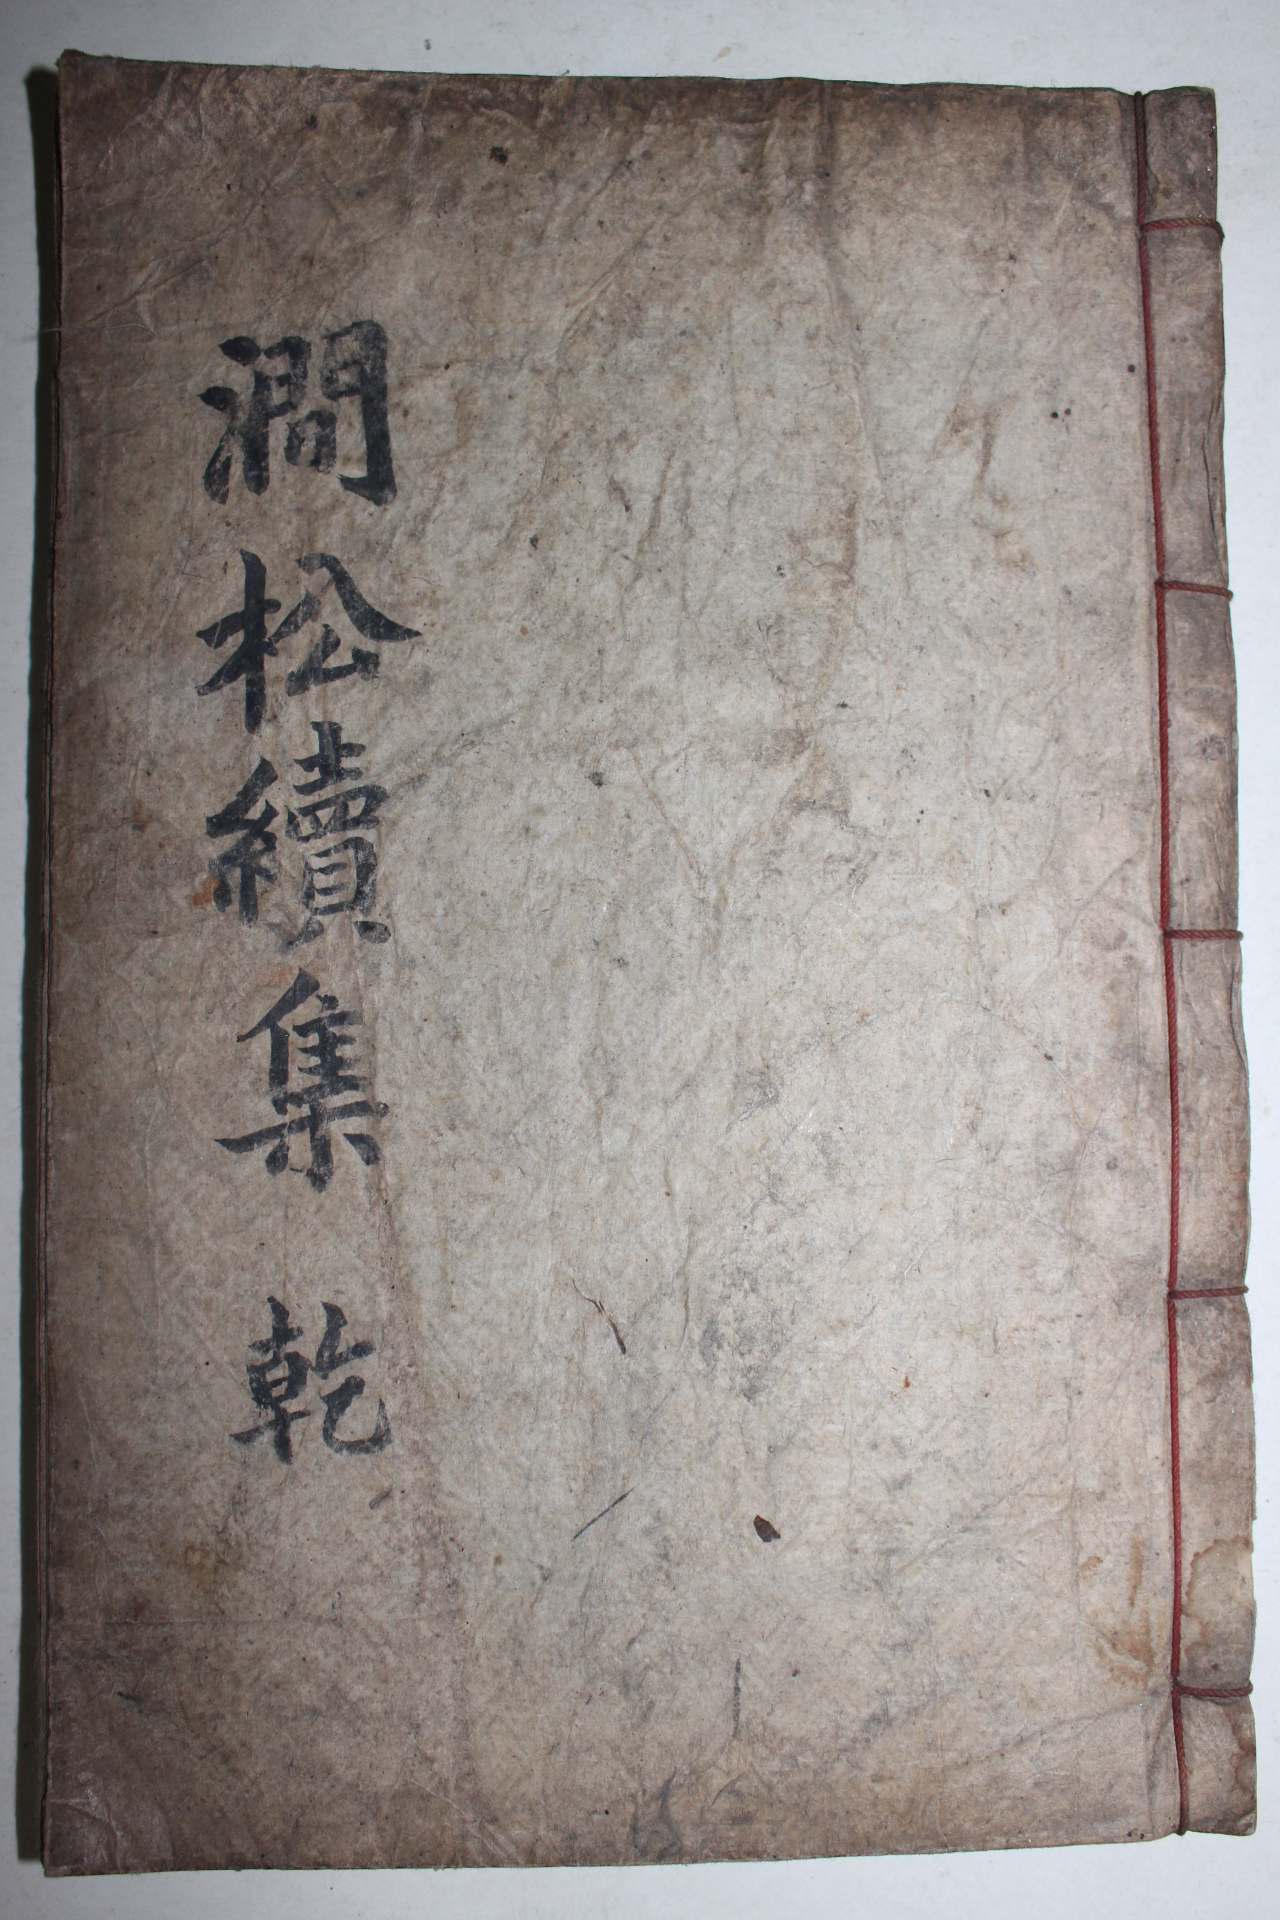 澗松續集 乾